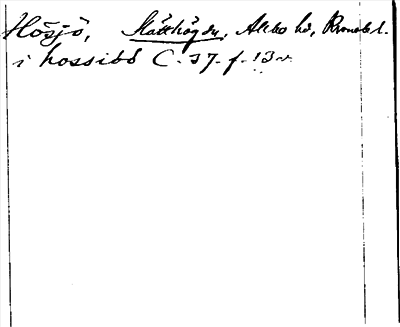 Hösjö, Slätthögdn, Allbo hd, Kronobl.
i hossibö C-37-f-13v